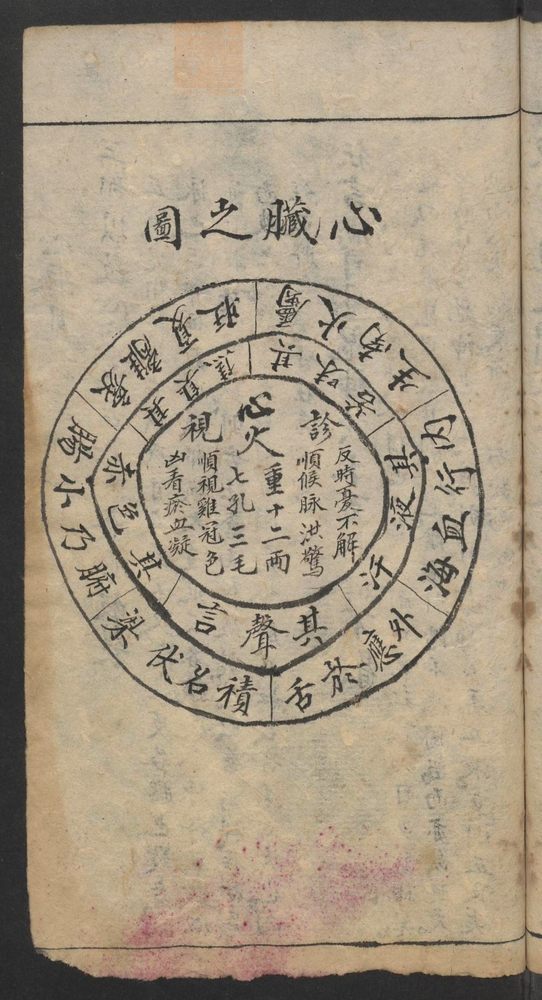 心臟之圖
屬火南生
內行血海
外應於舌
積名伏梁
腑乃小腸
離夏旺
其味苦
其液汗
其聲言
其色赤
其臭焦
診
反時憂不解
順候脉洪驚
心火
重十二兩
七孔三毛
視
順視雞冠色
凶看瘀血凝